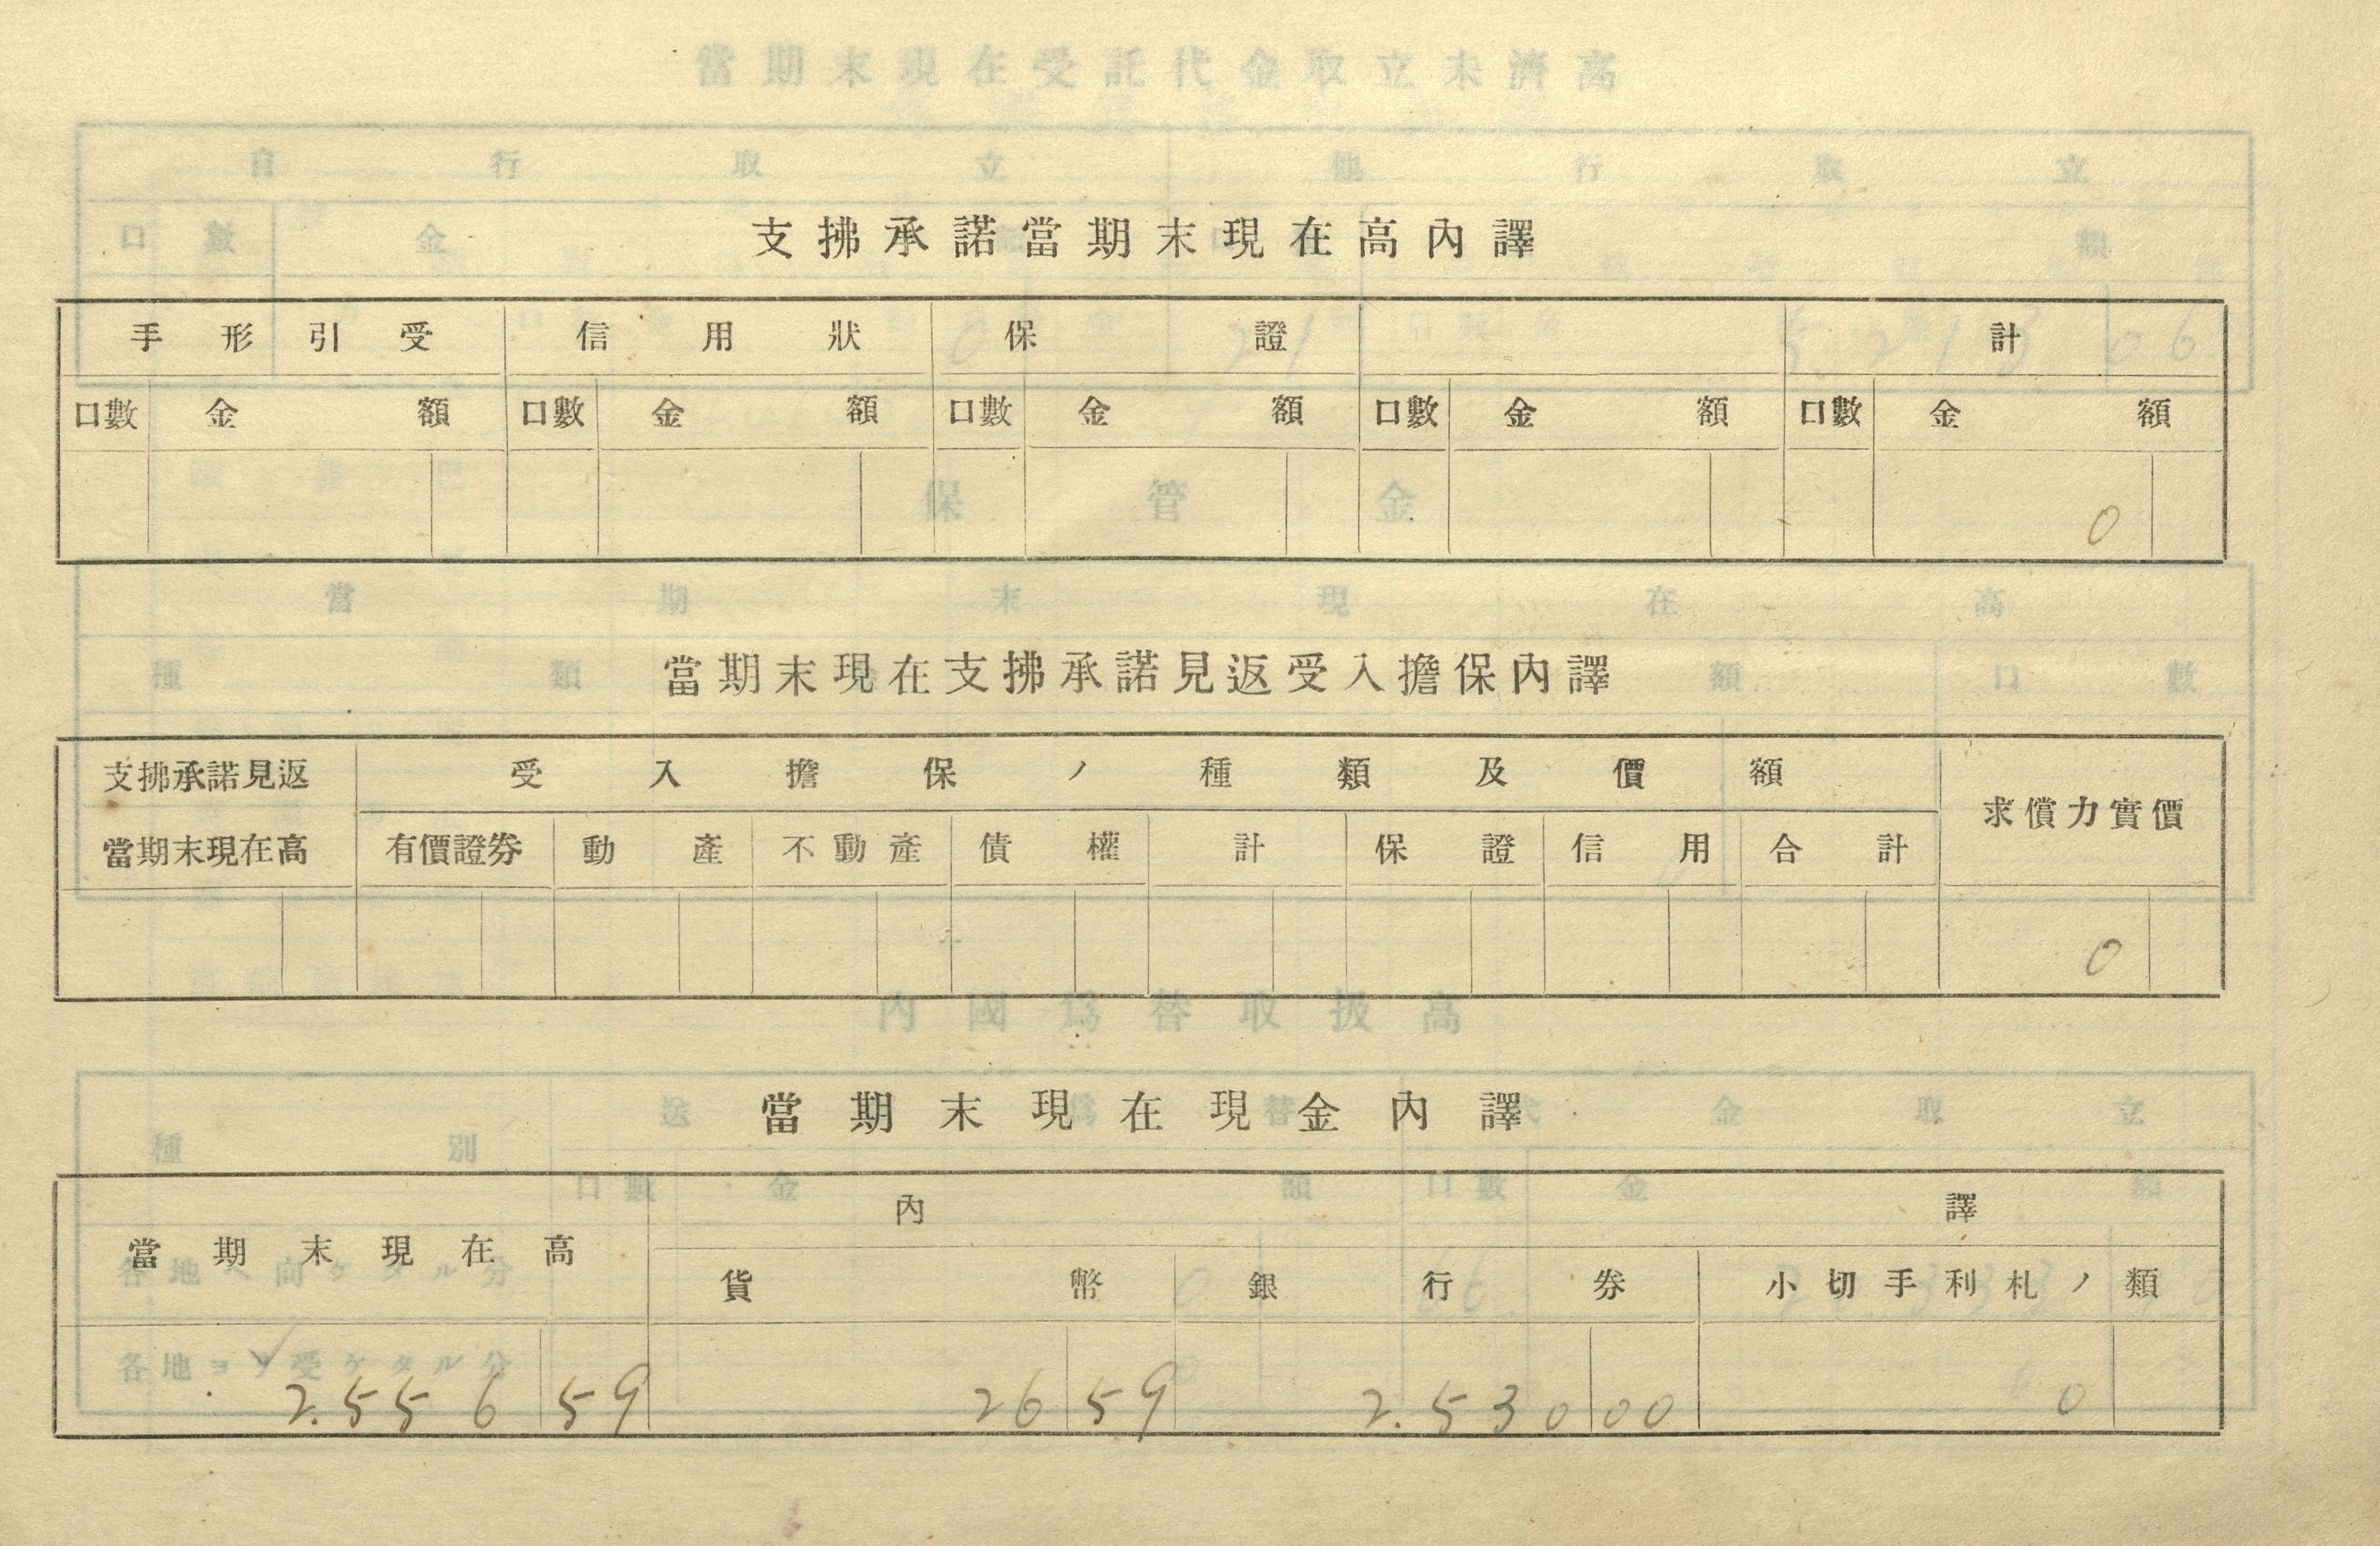 支拂承諾當期末現在高內譯
手形引受 信用狀 保證 計
口數 金額 口數 金額 口數 金額 口數 金額 口數 金額
0
當期末現在支拂承諾見返受入擔保內譯
支拂承諾見返 受入擔保ノ種類及價額 求償力實價
當期末現在高 有價證券 動產 不動產 債權 計 保證 信用 合計
0
當期末現在現金內譯
內譯
當期末現在高
貨幣 銀行券 小切手利札ノ類
2.556 59 26 59 2.530 00 0